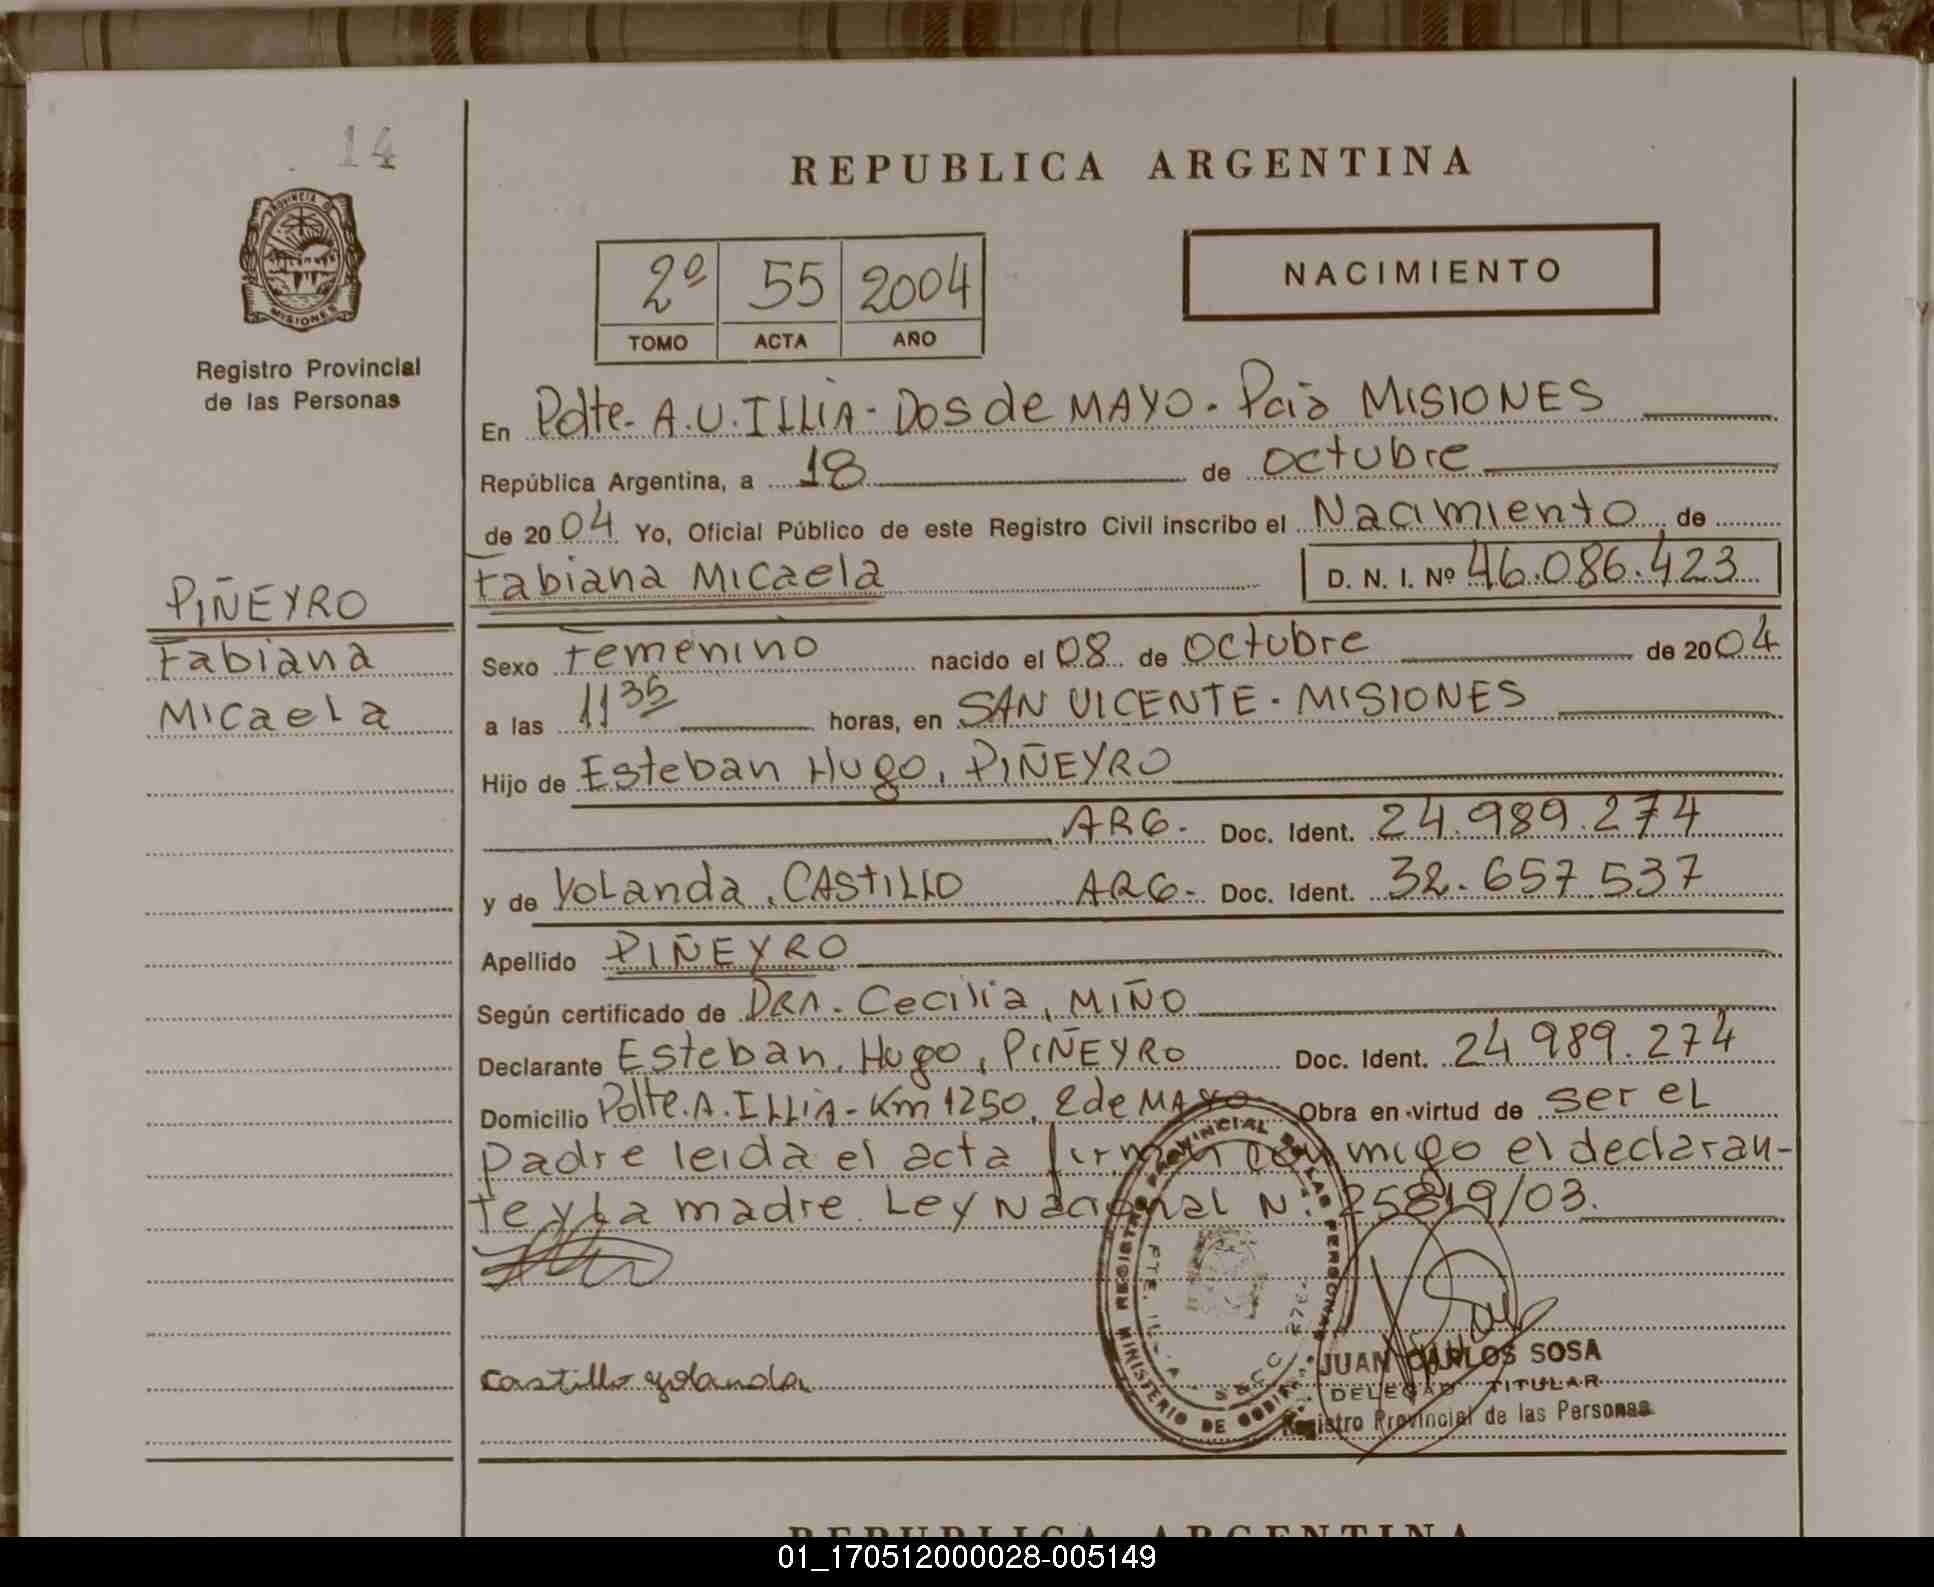 14
PROVINCIA DE
MISIONES
Registro Provincial
de las Personas
PIÑEYRO
Fabiana
Micaela
REPUBLICA ARGENTINA
2º 55 2004
TOMO ACTA AÑO
NACIMIENTO
En Pdte. A.U. ILLIA - DOS de MAYO - Pcia MISIONES
República Argentina, a 18 de octubre
de 2004 Yo, Oficial Público de este Registro Civil inscribo el Nacimiento de
Fabiana Micaela D. N. I. Nº 46.086.423
Sexo Femenino nacido el 08 de octubre de 2004
a las 11 35 horas, en SAN VICENTE - MISIONES
Hijo de Esteban Hugo, PIÑEYRO
ARG. Doc. Ident. 24.989.274
y de Yolanda, CASTILLO ARG- Doc. Ident. 32.657.537
Apellido PIÑEYRO
Según certificado de DRA. Cecilia, MIÑO
Declarante Esteban, Hugo, PIÑEYRO Doc. Ident. 24.989.274
Domicilio Pdte. A. ILLIA - Km 1250, 2 de MAYO Obra en virtud de ser el
padre leida el acta firman conmigo el declaran-
te y la madre. Ley Nacional N. 25819/03.
castillo yolanda
REGISTRO PROVINCIAL DE LAS PERSONAS
MINISTERIO DE GOBIERNO
JUAN CARLOS SOSA
DELEGADO TITULAR
Registro Provincial de las Personas
REPUBLICA ARGENTINA
01_170512000028-005149